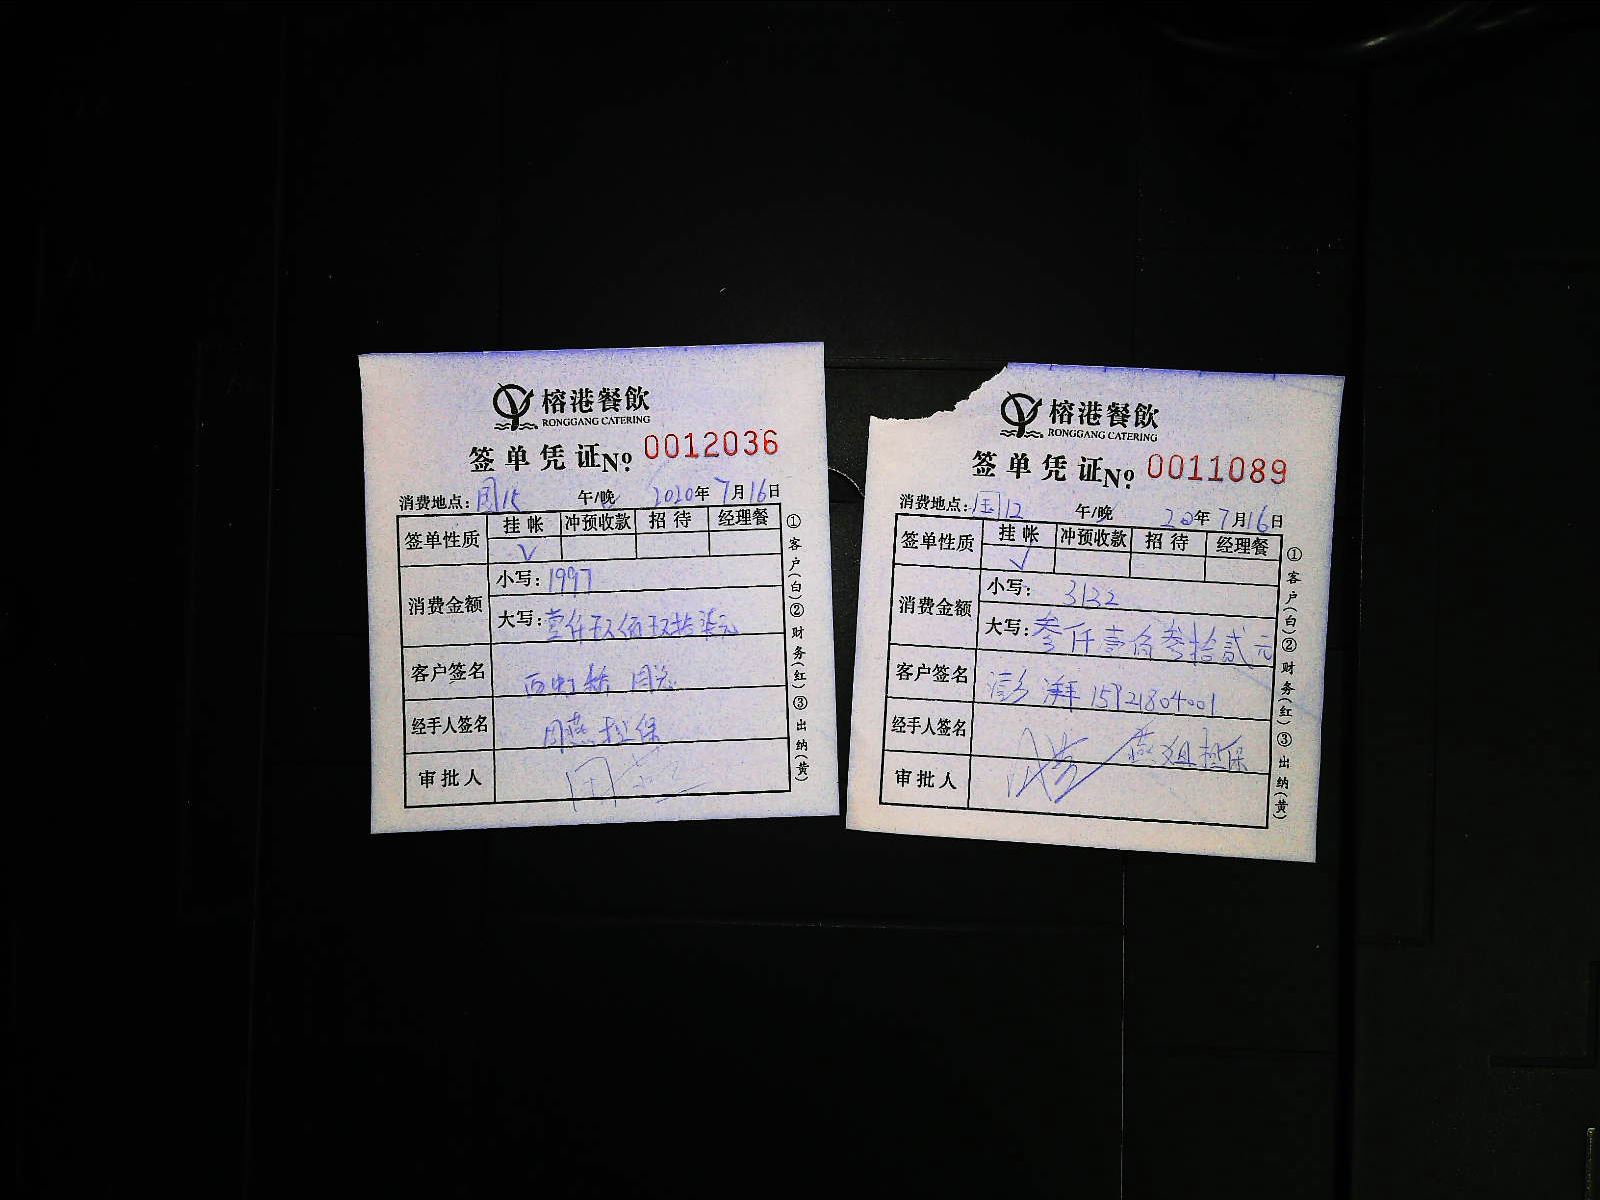 榕港餐飲
RONGGANG CATERING
签单凭证No 0012036
消费地点: 国15 午/晚 2020年7月16日
签单性质 挂帐 冲预收款 招待 经理餐
√
消费金额 小写: 1997
大写: 壹仟玖佰玖拾柒元
客户签名
经手人签名 周燕担保
审批人
①客户(白)②财务(红)③出纳(黄)
榕港餐飲
RONGGANG CATERING
签单凭证No 0011089
消费地点: 国12 午/晚 20年7月16日
签单性质 挂帐 冲预收款 招待 经理餐
√
消费金额 小写: 3132
大写: 叁仟壹佰叁拾贰元
客户签名 澎湃 15921804001
经手人签名 燕姐担保
审批人
①客户(白)②财务(红)③出纳(黄)